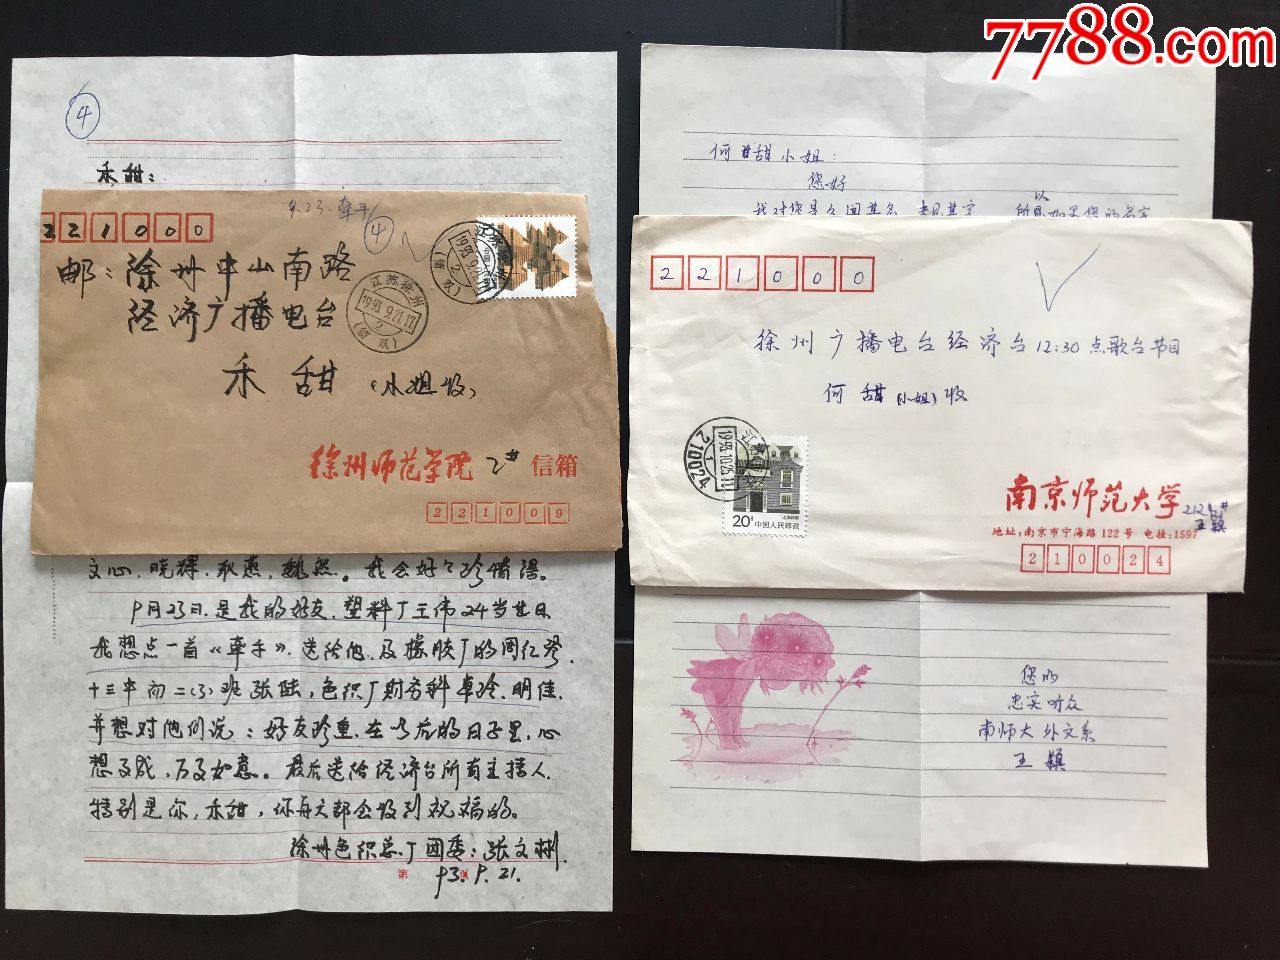 7788.com
4
禾甜：
9.23.牵手
4
221000
邮：徐州中山南路
经济广播电台
禾甜（小姐收）
江苏徐州
1993.9.21.17
2
徐州师范学院 2# 信箱
221009
文心，晓辉，耿燕，魏然。我会好好珍惜得。
9月23日，是我的好友，塑料厂王伟24岁生日
我想点一首《牵手》，送给他，及橡胶厂的周仁芬，
十三中初二(3)班张陆，色织厂财务科卓玲，明佳，
并想对他们说：好友珍重，在今后的日子里，心
想事成，万事如意。最后送给经济台所有主持人，
特别是你，禾甜，你每天都会收到祝福的。
徐州色织总厂团委：张文彬
93.9.21.
第
何甜小姐：
您好
以
我对您是久闻其名，未见其容
221000
徐州广播电台经济台12:30点歌台节目
何甜（小姐）收
210024
1993.10.25.11
1
20分中国人民邮政
上海民居
南京师范大学
王颖
地址：南京市宁海路122号 电挂：1597
210024
您的
忠实听众
南师大外文系
王颖